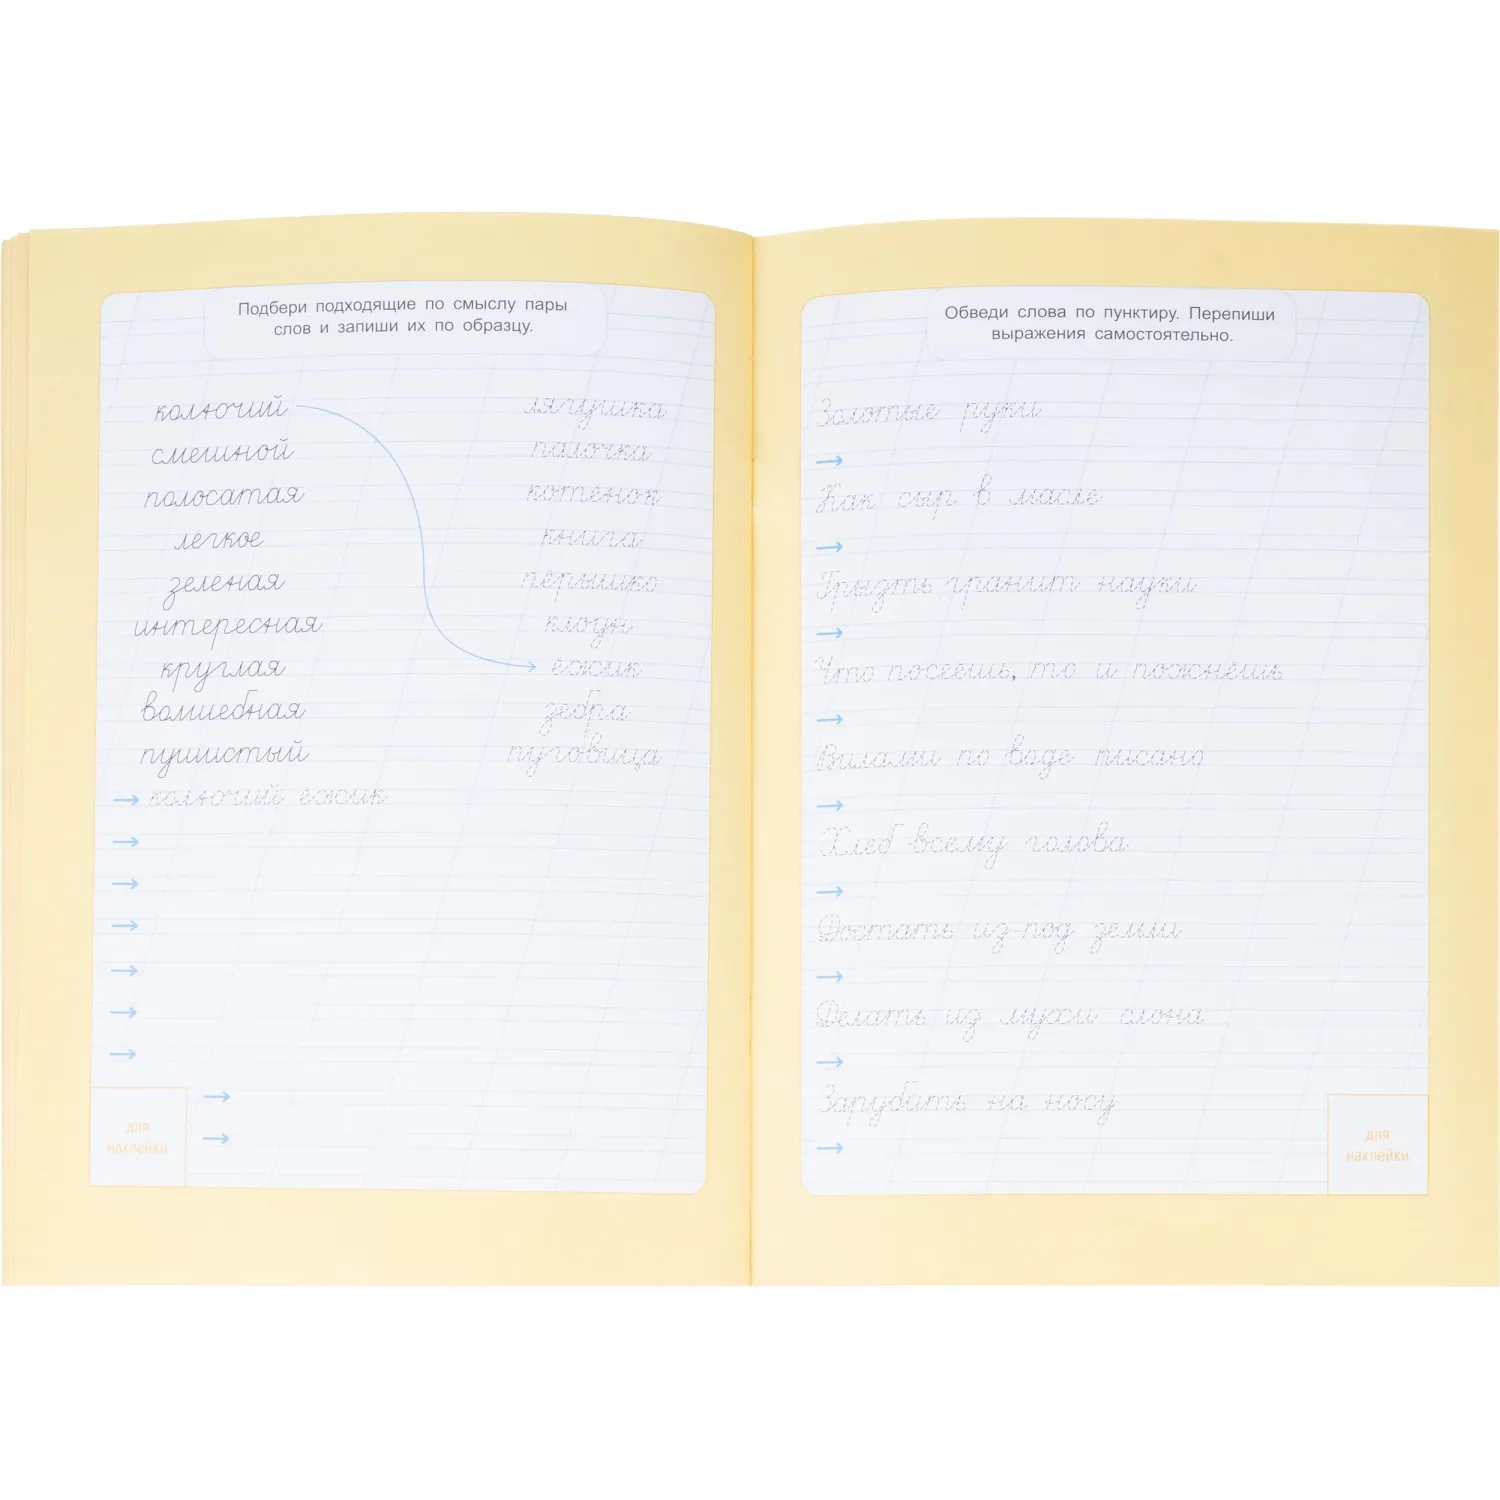 Подбери подходящие по смыслу пары
слов и запиши их по образцу.
колючий лягушка
смешной палочка
полосатая котёнок
легкое книга
зеленая пёрышко
интересная клоун
круглая ёжик
волшебная зебра
пушистый пуговица
→ колючий ёжик
→
→
→
→
→
→
→
→
для
наклейки
Обведи слова по пунктиру. Перепиши
выражения самостоятельно.
Золотые руки
→
Как сыр в масле
→
Грызть гранит науки
→
Что посеешь, то и пожнёшь
→
Вилами по воде писано
→
Хлеб всему голова
→
Достать из-под земли
→
Делать из мухи слона
→
Зарубить на носу
→
для
наклейки